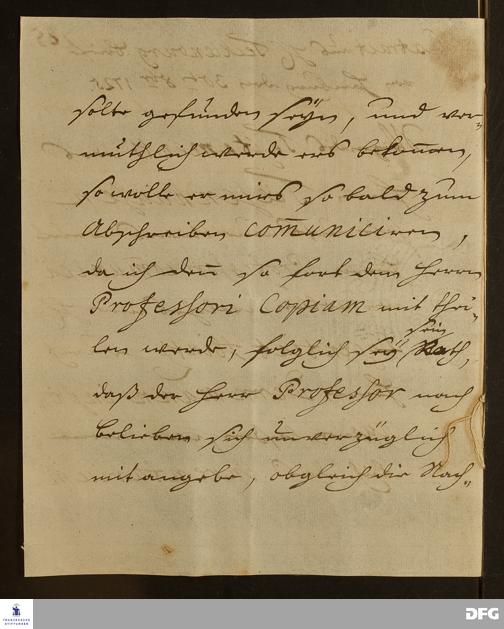 solte gefunden seyn, und ver-
muthlich werde ers bekom̄en,
so wolle er mirs so bald zum
Abschreiben com̄uniciren,
da ich den̄ so fort dem Herrn
Professori Copiam mit thei-
len werde, folglich sey sein Rath,
daß der Herr Professor nach
belieben sich unverzüglich
mit angebe, obgleich die Nach-
FRANCKESCHE
STIFTUNGEN
DFG